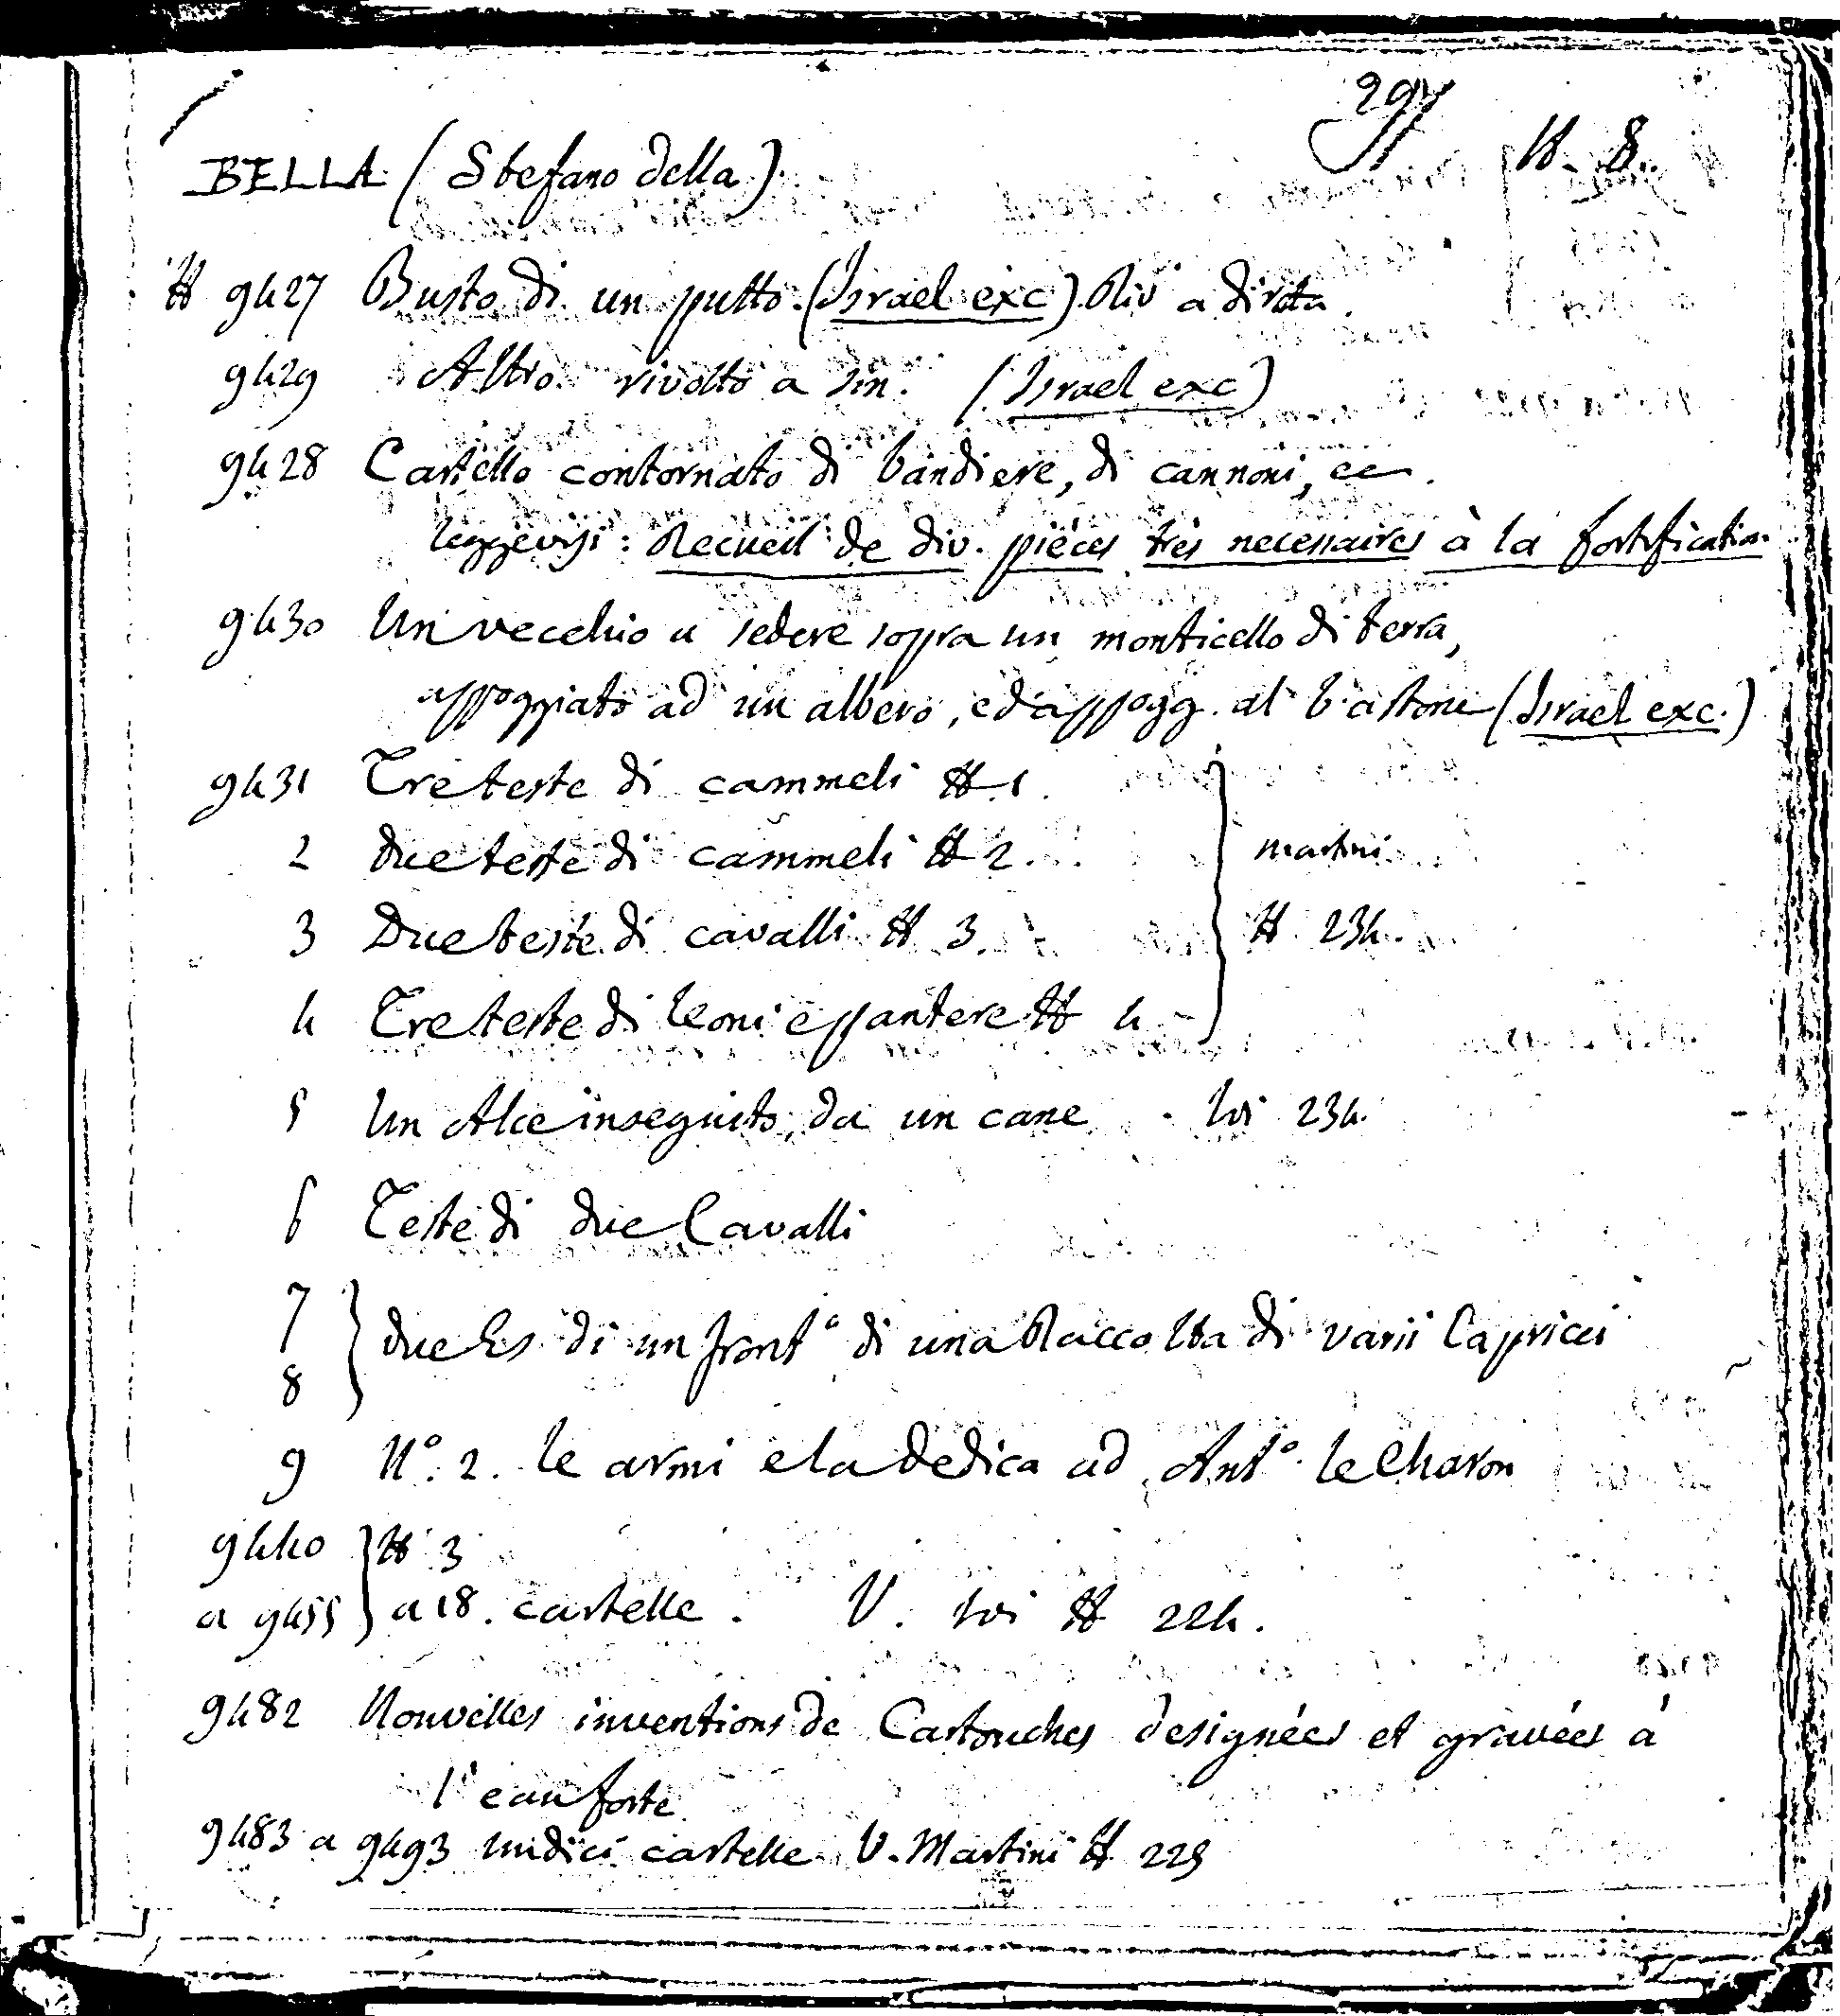 297 N. 8.
BELLA (Stefano della).
N 9427 Busto di un putto. (Israel exc). Riv a diritta.
9429 Altro rivolto a sin. (Israel exc)
9428 Cartello contornato di bandiere, di cannoni, ec.
leggevisi: Recueil de div. piéces très necessaires à la fortification
9430 Un vecchio a sedere sopra un monticello di terra,
appoggiato ad un albero, ed appogg. al bastone (Israel exc.)
9431 Tre teste di cammeli N 1.
2 due teste di cammeli N 2. martini
3 Due teste di cavalli N 3. N 234.
4 Tre teste di leoni e pantere N 4
5 Un Alce inseguito da un cane. Ivi 234.
6 Teste di due Cavalli
7
8 due Es. di un front° di una Raccolta di varii Capricci
9 N°. 2. le armi e la dedica ad Ant°. le Charon
9440 N 3
a 9455 a 18. cartelle. V. Ivi N 224.
9482 Nouvelles inventions de Cartouches designées et gravées á
l'eau forte
9483 a 9493 undici cartelle V. Martini N 225